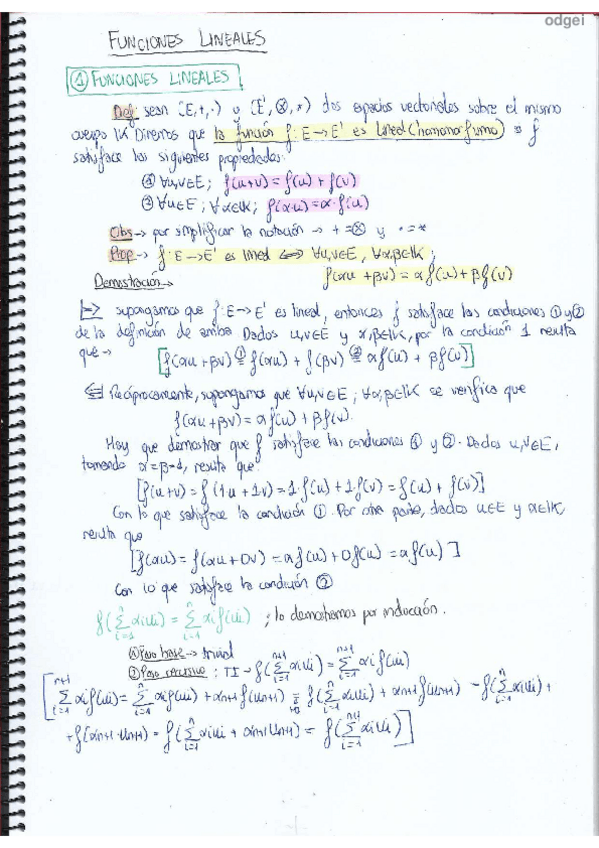 odgei
FUNCIONES LINEALES
① FUNCIONES LINEALES
Def: sean (E,+,·) y (E',⊗,*) dos espacios vectoriales sobre el mismo
cuerpo IK. Diremos que la función f: E→E' es lineal (homomorfismo) si f
satisface las siguientes propiedades:
① ∀u,v∈E; f(u+v) = f(u) + f(v)
② ∀u∈E; ∀α∈IK; f(α·u) = α·f(u)
Obs → por simplificar la notación → + = ⊗ y · = *
Prop → f: E→E' es lineal ⟺ ∀u,v∈E, ∀α,β∈IK;
f(αu + βv) = αf(u) + βf(v)
Demostración →
⊢> supongamos que f: E→E' es lineal, entonces f satisface las condiciones ① y ②
de la definición de arriba. Dados u,v∈E y α,β∈IK, por la condición 1 resulta
que → [f(αu + βv) ①= f(αu) + f(βv) ②= αf(u) + βf(v)]
⟸ Recíprocamente, supongamos que ∀u,v∈E; ∀α,β∈IK se verifica que
f(αu + βv) = αf(u) + βf(v).
Hay que demostrar que f satisface las condiciones ① y ②. Dados u,v∈E,
tomando α=β=1, resulta que:
[f(u+v) = f(1u + 1v) = 1·f(u) + 1·f(v) = f(u) + f(v)]
Con lo que satisface la condición ①. Por otra parte, dados u∈E y α∈IK,
resulta que
[f(αu) = f(αu + 0v) = αf(u) + 0f(u) = αf(u)]
Con lo que satisface la condición ②
f(∑ⁿᵢ₌₁ αiui) = ∑ⁿᵢ₌₁ αif(ui) ; lo demostramos por inducción.
① Paso base → trivial
② Paso recursivo: TI → f(∑ⁿ⁺¹ᵢ₌₁ αiui) = ∑ⁿ⁺¹ᵢ₌₁ αif(ui)
[∑ⁿ⁺¹ᵢ₌₁ αif(ui) = ∑ⁿᵢ₌₁ αif(ui) + αn+1f(un+1) = f(∑ⁿᵢ₌₁ αiui) + αn+1f(un+1) = f(∑ⁿᵢ₌₁ αiui) +
+ f(αn+1·un+1) = f(∑ⁿᵢ₌₁ αiui + αn+1un+1) = f(∑ⁿ⁺¹ᵢ₌₁ αiui)]